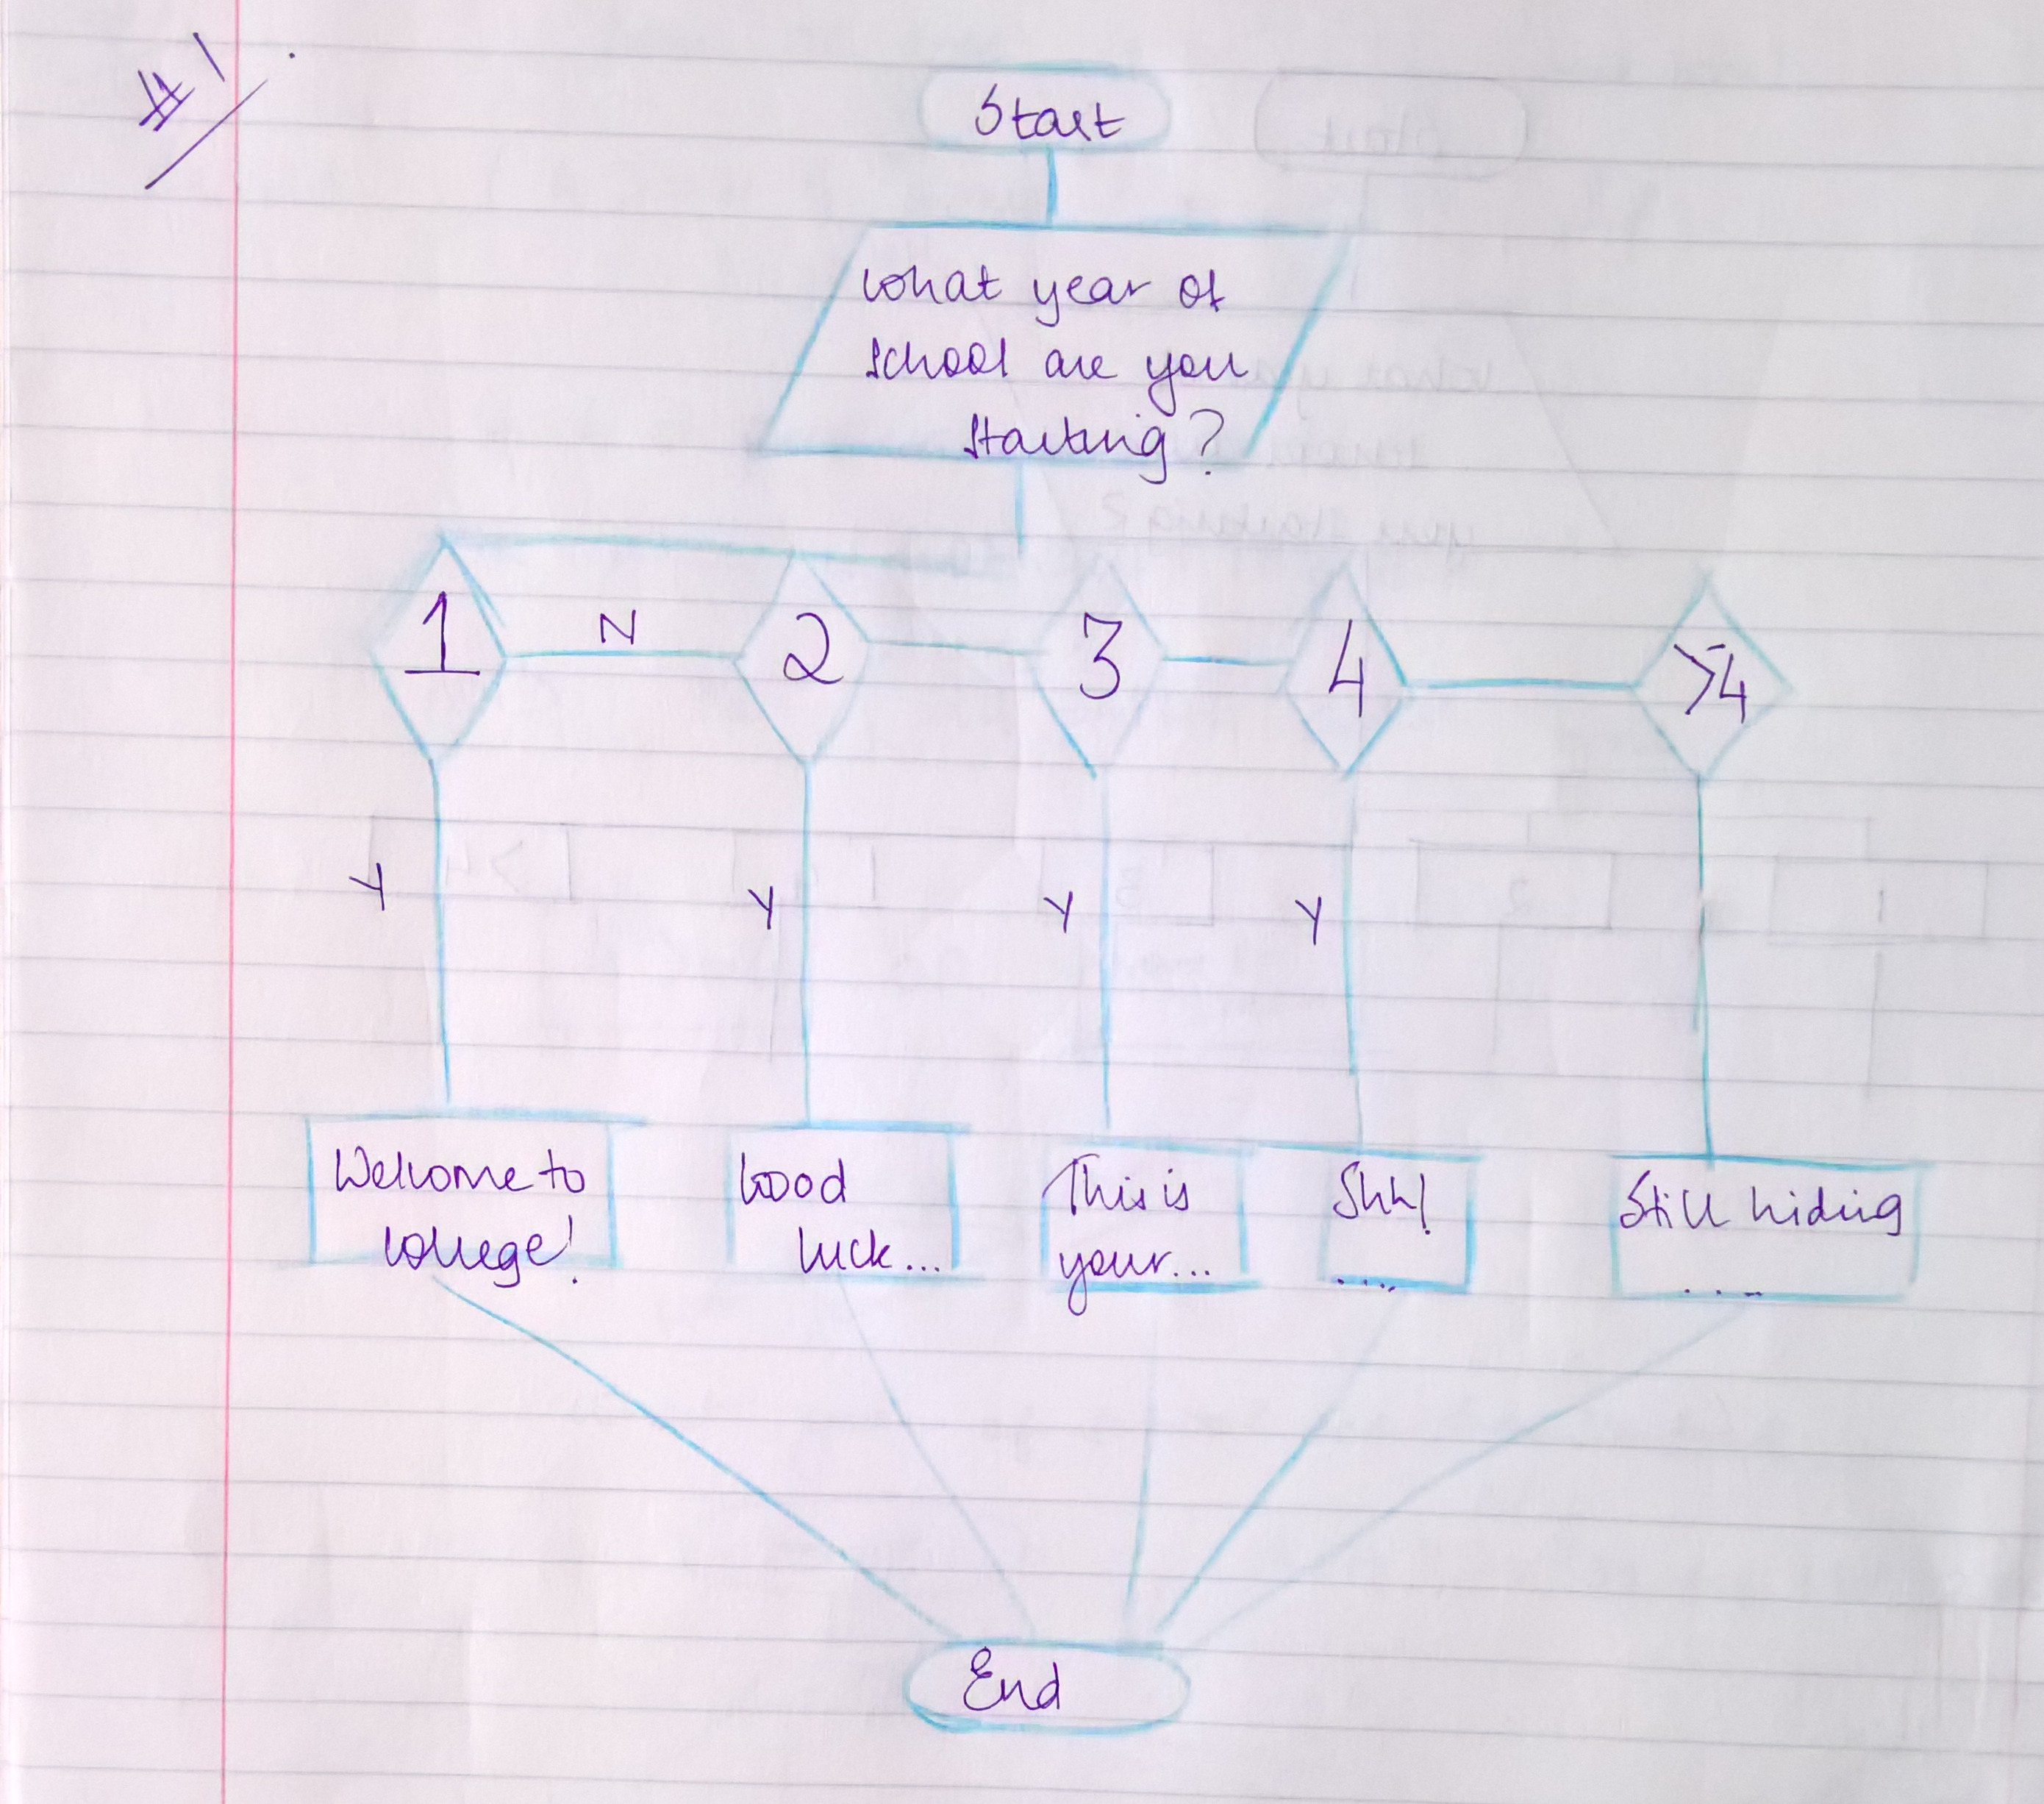 #1
Start
What year of
school are you
starting?
1 N 2 3 4 >4
Y Y Y Y
Welcome to
college!
Good
luck...
This is
your...
Shh!
....
Still hiding
....
End